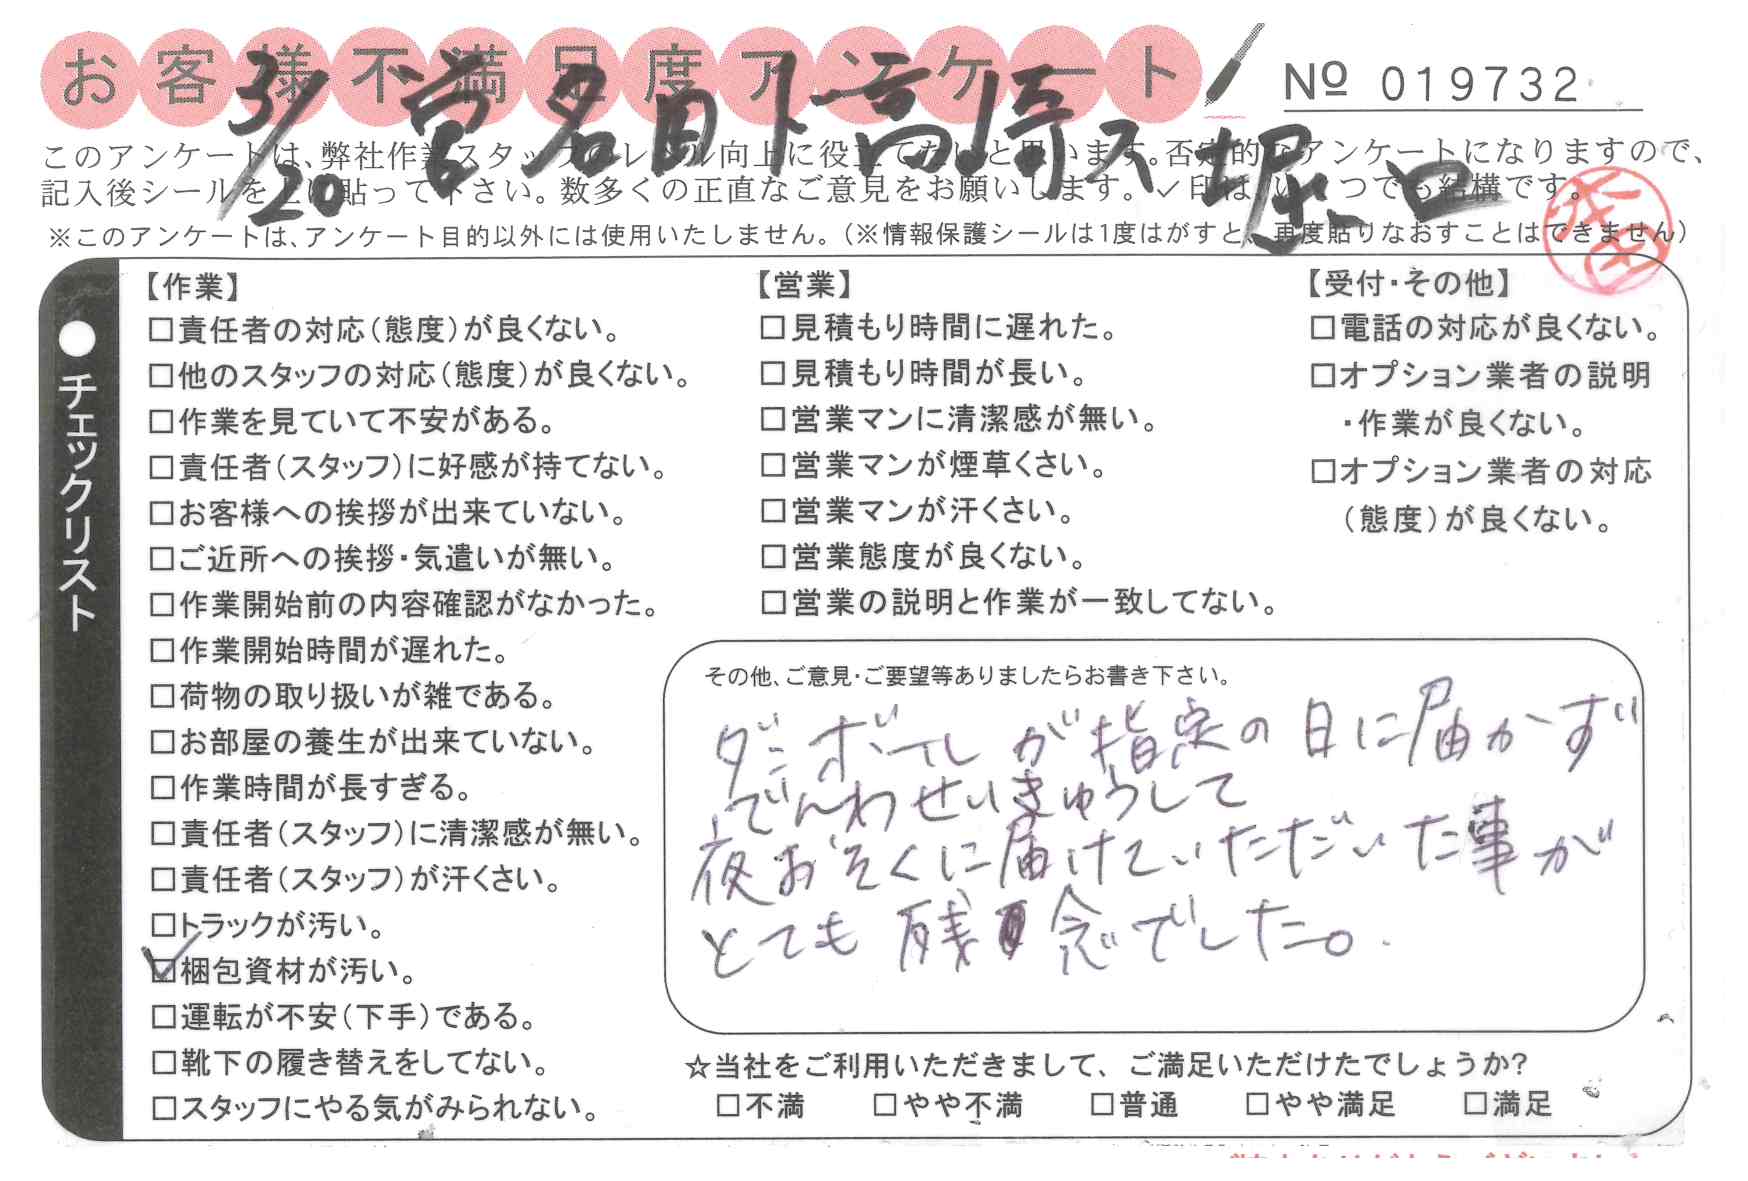 お客様不満足度アンケート
№ 019732
3/20 営 名取下 高崎 ス 堀口
このアンケートは、弊社作業スタッフのレベル向上に役立てたいと思います。否定的なアンケートになりますので、
記入後シールを上に貼って下さい。数多くの正直なご意見をお願いします。✓印は、いくつでも結構です。
※このアンケートは、アンケート目的以外には使用いたしません。(※情報保護シールは1度はがすと、再度貼りなおすことはできません)
チェックリスト
【作業】
□責任者の対応(態度)が良くない。
□他のスタッフの対応(態度)が良くない。
□作業を見ていて不安がある。
□責任者(スタッフ)に好感が持てない。
□お客様への挨拶が出来ていない。
□ご近所への挨拶・気遣いが無い。
□作業開始前の内容確認がなかった。
□作業開始時間が遅れた。
□荷物の取り扱いが雑である。
□お部屋の養生が出来ていない。
□作業時間が長すぎる。
□責任者(スタッフ)に清潔感が無い。
□責任者(スタッフ)が汗くさい。
□トラックが汚い。
☑梱包資材が汚い。
□運転が不安(下手)である。
□靴下の履き替えをしてない。
□スタッフにやる気がみられない。
【営業】
□見積もり時間に遅れた。
□見積もり時間が長い。
□営業マンに清潔感が無い。
□営業マンが煙草くさい。
□営業マンが汗くさい。
□営業態度が良くない。
□営業の説明と作業が一致してない。
【受付・その他】
□電話の対応が良くない。
□オプション業者の説明
・作業が良くない。
□オプション業者の対応
(態度)が良くない。
その他、ご意見・ご要望等ありましたらお書き下さい。
ダンボールが指定の日に届かず
でんわせいきゅうして
夜おそくに届けていただいた事が
とても残念でした。
☆当社をご利用いただきまして、ご満足いただけたでしょうか?
□不満 □やや不満 □普通 □やや満足 □満足